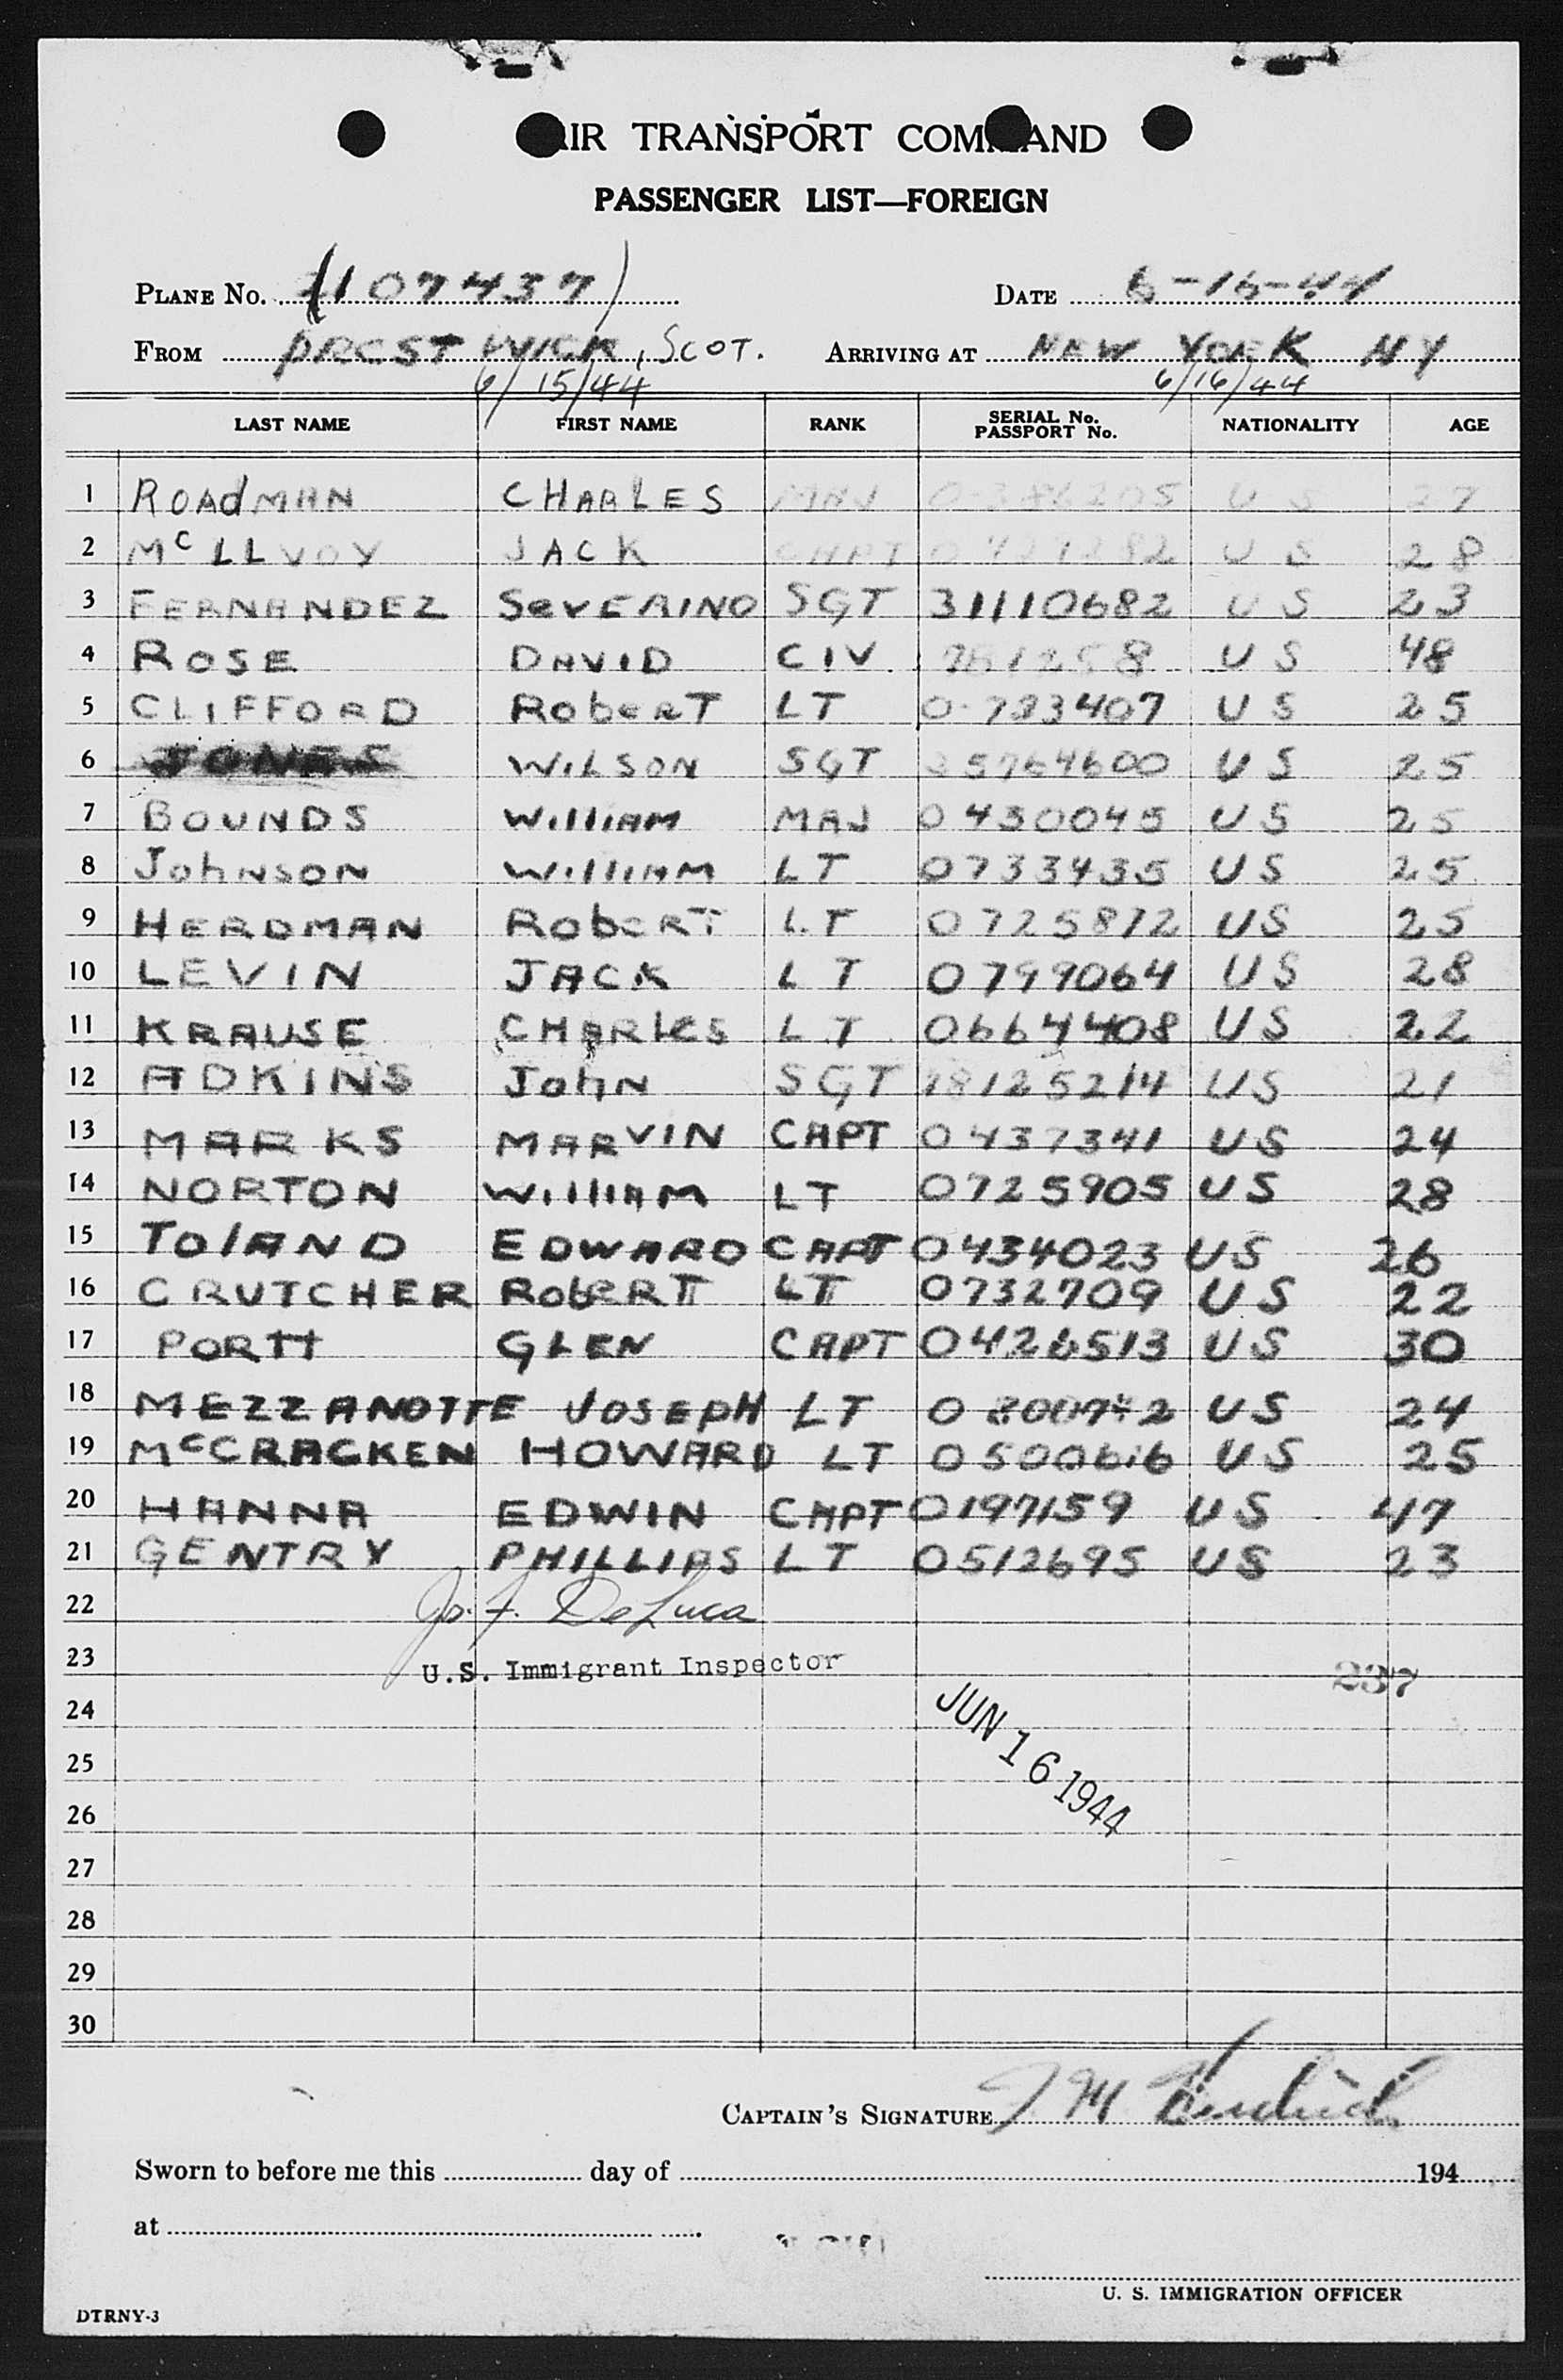 AIR TRANSPORT COMMAND
PASSENGER LIST—FOREIGN
PLANE No. (107437) DATE 6-16-44
FROM PRESTWICK, SCOT. ARRIVING AT NEW YORK NY
6/15/44 6/16/44
LAST NAME FIRST NAME RANK SERIAL No. PASSPORT No. NATIONALITY AGE
1 ROADMAN CHARLES MAJ 0-386205 US 27
2 McLLVOY JACK CAPT US 28
3 FERNANDEZ SeVERINO SGT 31110682 US 23
4 ROSE DAVID CIV US 48
5 CLIFFORD RobeRT LT 0-733407 US 25
6 JONES WILSON SGT 35764600 US 25
7 BOUNDS WilliAM MAJ 0430045 US 25
8 JohNSON WilliAM LT 0733435 US 25
9 HERDMAN RobERT LT 0725812 US 25
10 LEVIN JACK LT 0799064 US 28
11 KRAUSE CHARles LT 0664408 US 22
12 ADKINS JohN SGT 18125214 US 21
13 MARKS MARVIN CAPT 0437341 US 24
14 NORTON WilliAM LT 0725905 US 28
15 TolAND EDWARD CAPT 0434023 US 26
16 CRUTCHER RobERT LT 0732709 US 22
17 PORTT GLEN CAPT 0426513 US 30
18 MEZZANOTTE JOSEPH LT 0800742 US 24
19 McCRACKEN HOWARD LT 0500616 US 25
20 HANNA EDWIN CAPT 0197159 US 47
21 GENTRY PHILLIPS LT 0512695 US 23
22 Jo. F. DeLuca
23 U.S. Immigrant Inspector 237
24
JUN 16 1944
25
26
27
28
29
30
CAPTAIN'S SIGNATURE J M
Sworn to before me this day of 194
at
U. S. IMMIGRATION OFFICER
DTRNY-3